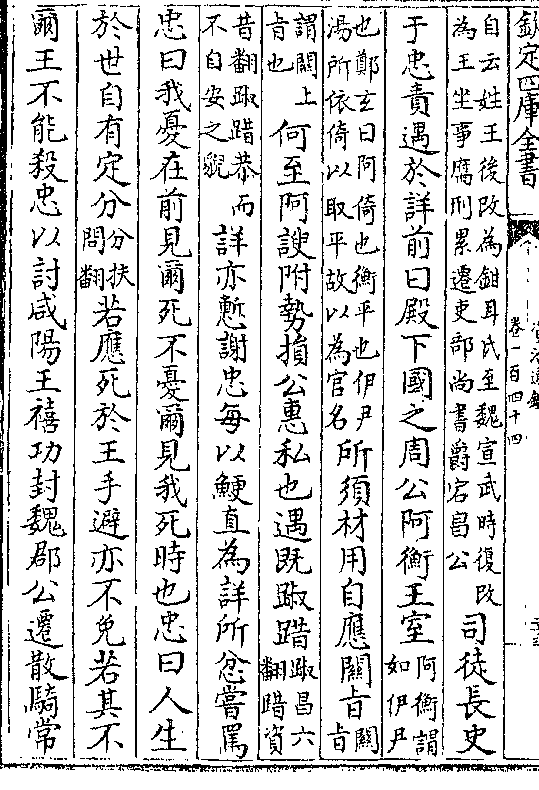 欽定四庫全書
卷一百四十四
自云姓王後改為鉗耳氏至魏宣武時復改
為王坐事腐刑累遷吏部尚書爵宕昌公
司徒長史
于忠責遇於詳前曰殿下國之周公阿衡王室
阿衡謂
如伊尹
也鄭玄曰阿倚也衡平也伊尹
湯所依倚以取平故以為官名
所須材用自應關旨
關
旨
謂關上
旨也
何至阿諛附勢損公惠私也遇既踧踖
踧昌六
翻踖資
昔翻踧踖恭而
不自安之貌
詳亦慙謝忠每以鯁直為詳所忿嘗罵
忠曰我憂在前見爾死不憂爾見我死時也忠曰人生
於世自有定分
分扶
問翻
若應死於王手避亦不免若其不
爾王不能殺忠以討咸陽王禧功封魏郡公遷散騎常